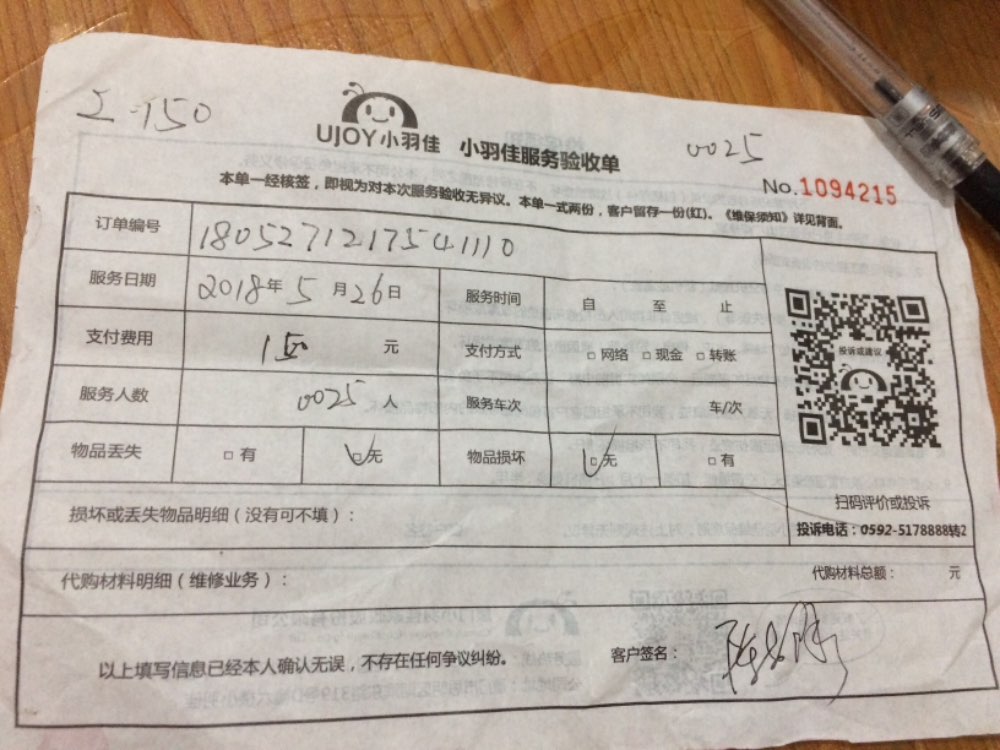 工-150
UJOY小羽佳 小羽佳服务验收单
0025
No.1094215
本单一经核签，即视为对本次服务验收无异议。本单一式两份，客户留存一份(红)。《维保须知》详见背面。
订单编号 180527121754110
服务日期 2018年5月26日 服务时间 自 至 止
支付费用 150 元 支付方式 □网络 □现金 □转账
服务人数 0025 人 服务车次 车/次
物品丢失 □有 □无 物品损坏 □无 □有
投诉或建议
扫码评价或投诉
投诉电话：0592-5178888转2
损坏或丢失物品明细（没有可不填）：
代购材料明细（维修业务）： 代购材料总额： 元
以上填写信息已经本人确认无误，不存在任何争议纠纷。 客户签名：